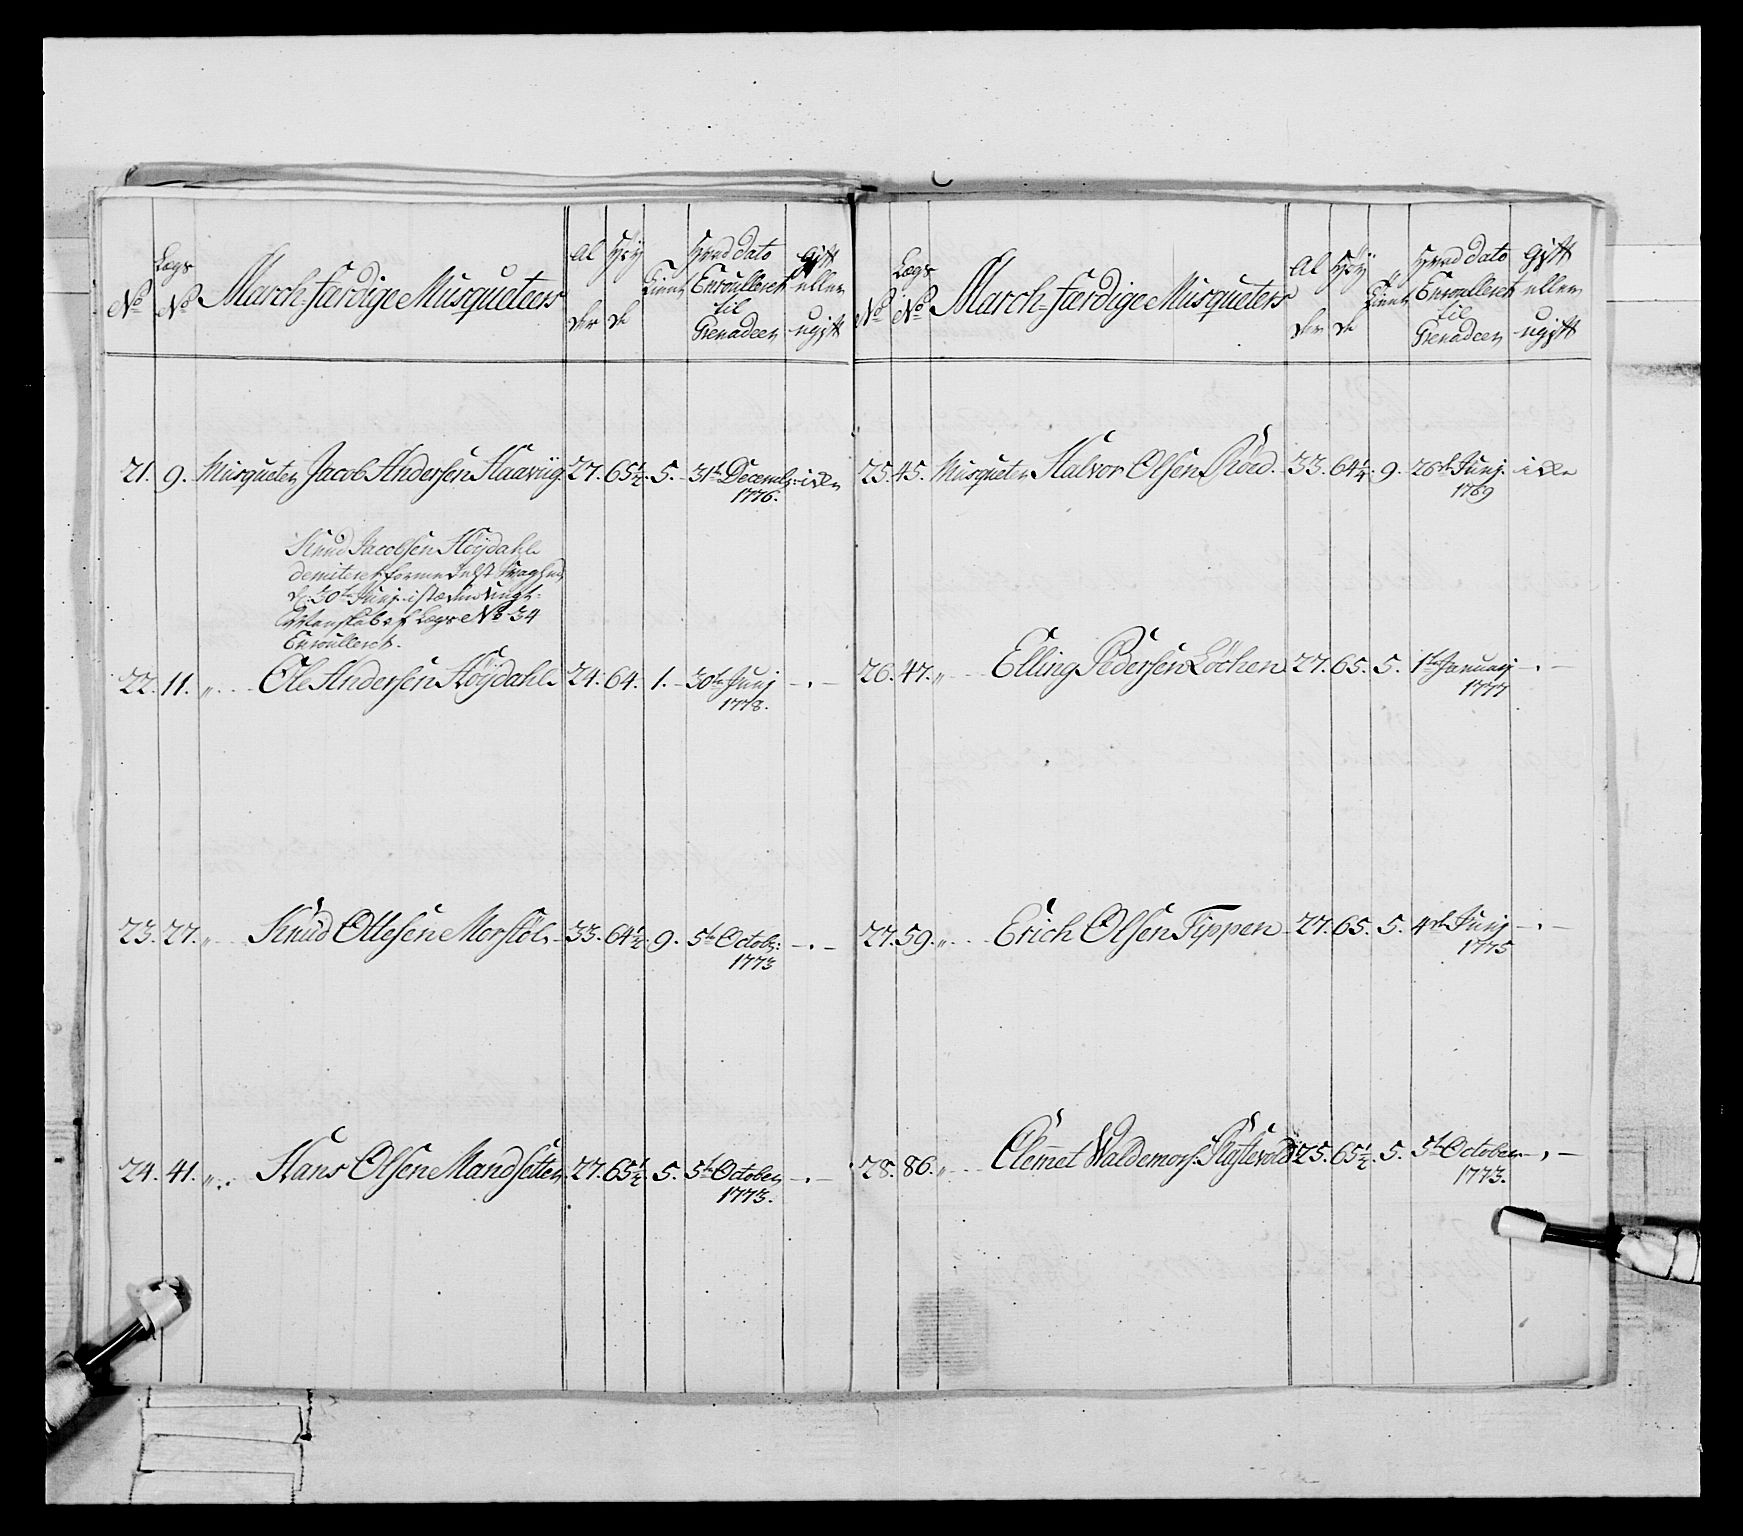 No
Lægs No
March-færdige Musqueteers
Alder
Høyde
Tient
Hvad dato Enroulleret til Grenadeer
Gift eller ugift
21. 9. Musqueteer Jacob Andersen Haavug. 27. 65½. 5. 31te Decembr: 1776.
Knud Jacobsen Høydahl
demiteret formedelst Svaghed
d: 30te Junj. istæden ungt-
Mandskab af Lægs No 34
Enroulleret.
22. 11. „ Ole Andersen Høydahl. 24. 64. 1. 30te Junj 1778. — . —
23. 27. „ Knud Ottesen Morstøl. 33. 64½. 9. 5te Octobr: 1773 — . —
24. 41. „ Hans Olsen Mandseter. 27. 65½. 5. 5te October 1773. — . —
No
Lægs No
March-færdige Musqueters
Alder
Høyde
Tient
Hvad dato Enroulleret til Grenadeer
Gift eller ugift
25. 45. Musqueter Halvor Olsen Røed. 33. 64¼. 9. 26de Junj. 1769
26. 47. „ Elling Pedersen Løchen 27. 65. 5. 1te Januarj 1777 — . —
27. 59. „ Erich Olsen Typpen 27. 65. 5. 4de Junj 1775 — . —
28. 86. „ Clemet Waldemors. 25. 65½. 5. 5te October 1773. — . —